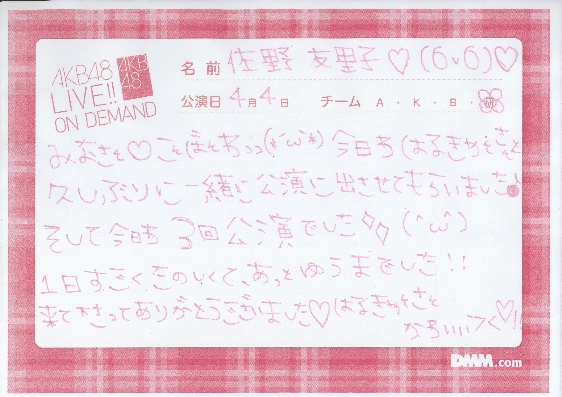 AKB48
LIVE!!
ON DEMAND
AKB
48
名前 佐野 友里子♡(6v6)♡
公演日 4月4日 チーム A・K・B・研
みなさそ♡こそばそわっっ(*´ω`*) 今日わはるきゃそさそと
久しぶりに一緒に公演に出させてもらいました
そして今日わ 3回公演でした (^ω^)
1日すごくたのしくて、あっとゆうまでした!!
来て下さってありがとうございました♡はるきゃそさそ
かわいいつく♡!
DMM.com